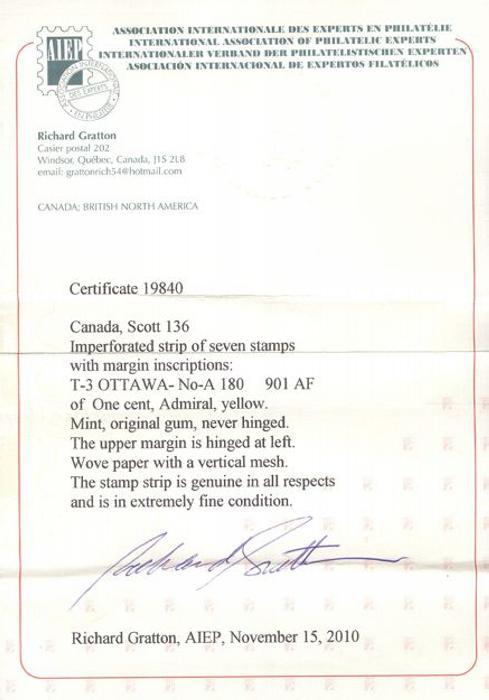 ASSOCIATION INTERNATIONALE DES EXPERTS EN PHILATÉLIE
INTERNATIONAL ASSOCIATION OF PHILATELIC EXPERTS
INTERNATIONALER VERBAND DER PHILATELISTISCHEN EXPERTEN
ASOCIACIÓN INTERNACIONAL DE EXPERTOS FILATÉLICOS
AIEP
ASSOCIATION INTERNATIONALE
DES EXPERTS
EN PHILATÉLIE
Richard Gratton
Casier postal 202
Windsor, Québec, Canada, J1S 2L8
email: grattonrich54@hotmail.com
CANADA; BRITISH NORTH AMERICA
Certificate 19840
Canada, Scott 136
Imperforated strip of seven stamps
with margin inscriptions:
T-3 OTTAWA- No-A 180 901 AF
of One cent, Admiral, yellow.
Mint, original gum, never hinged.
The upper margin is hinged at left.
Wove paper with a vertical mesh.
The stamp strip is genuine in all respects
and is in extremely fine condition.
Richard Gratton
Richard Gratton, AIEP, November 15, 2010